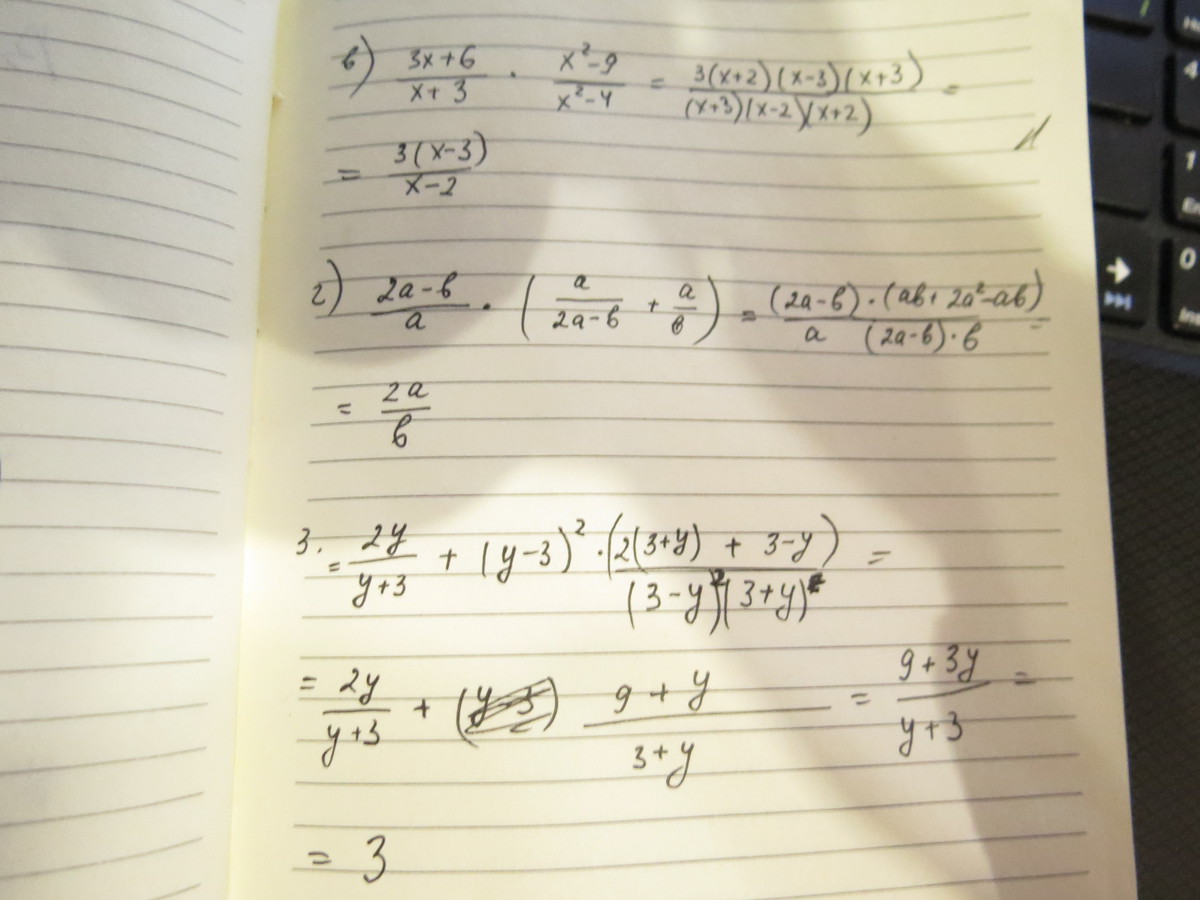 в) (3x+6)/(x+3) · (x²-9)/(x²-4) = (3(x+2)(x-3)(x+3))/((x+3)(x-2)(x+2)) =
= (3(x-3))/(x-2)
г) (2a-в)/a · (a/(2a-в) + a/в) = ((2a-в)·(aв+2a²-aв))/(a (2a-в)·в) =
= 2a/в
3. = 2y/(y+3) + (y-3)² · (2(3+y) + 3-y)/((3-y)²(3+y)) =
= 2y/(y+3) + (9+y)/(3+y) = (9+3y)/(y+3) =
= 3